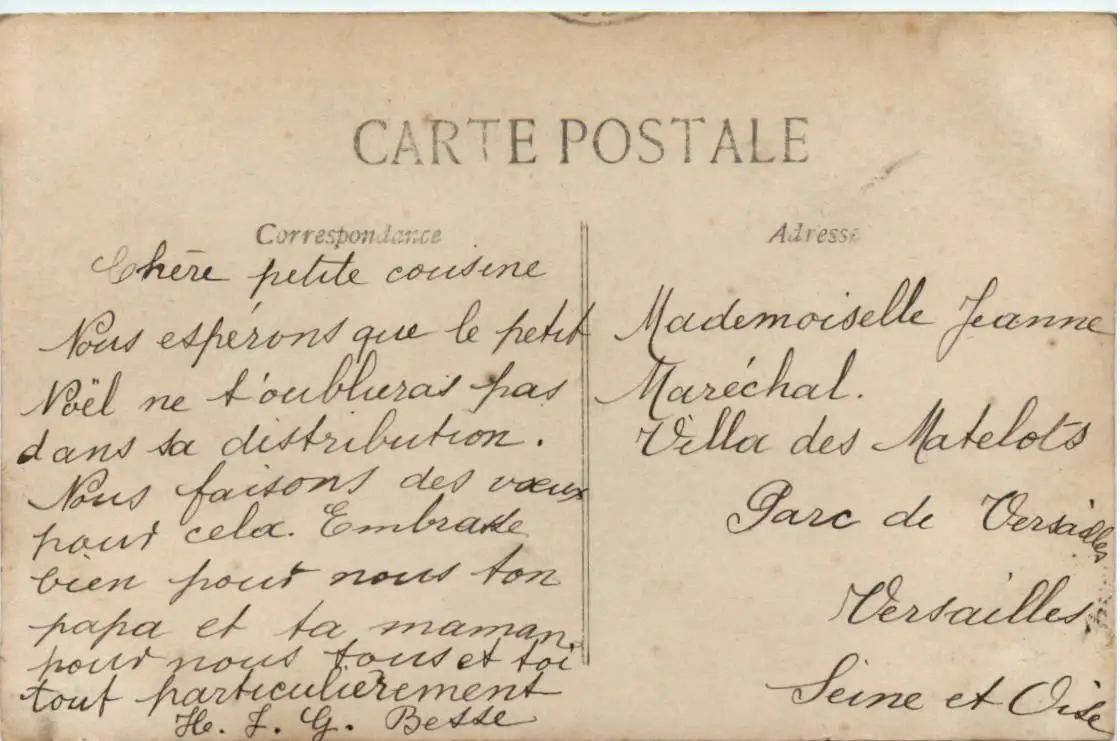 CARTE POSTALE
Correspondance
Chère petite cousine
Nous espérons que le petit
Noël ne t'oublieras pas
dans sa distribution.
Nous faisons des vœux
pour cela. Embrasse
bien pour nous ton
papa et ta maman,
pour nous tous et toi
tout particulièrement
H. J. G. Besse
Adresse
Mademoiselle Jeanne
Maréchal.
Villa des Matelots
Parc de Versailles
Versailles
Seine et Oise